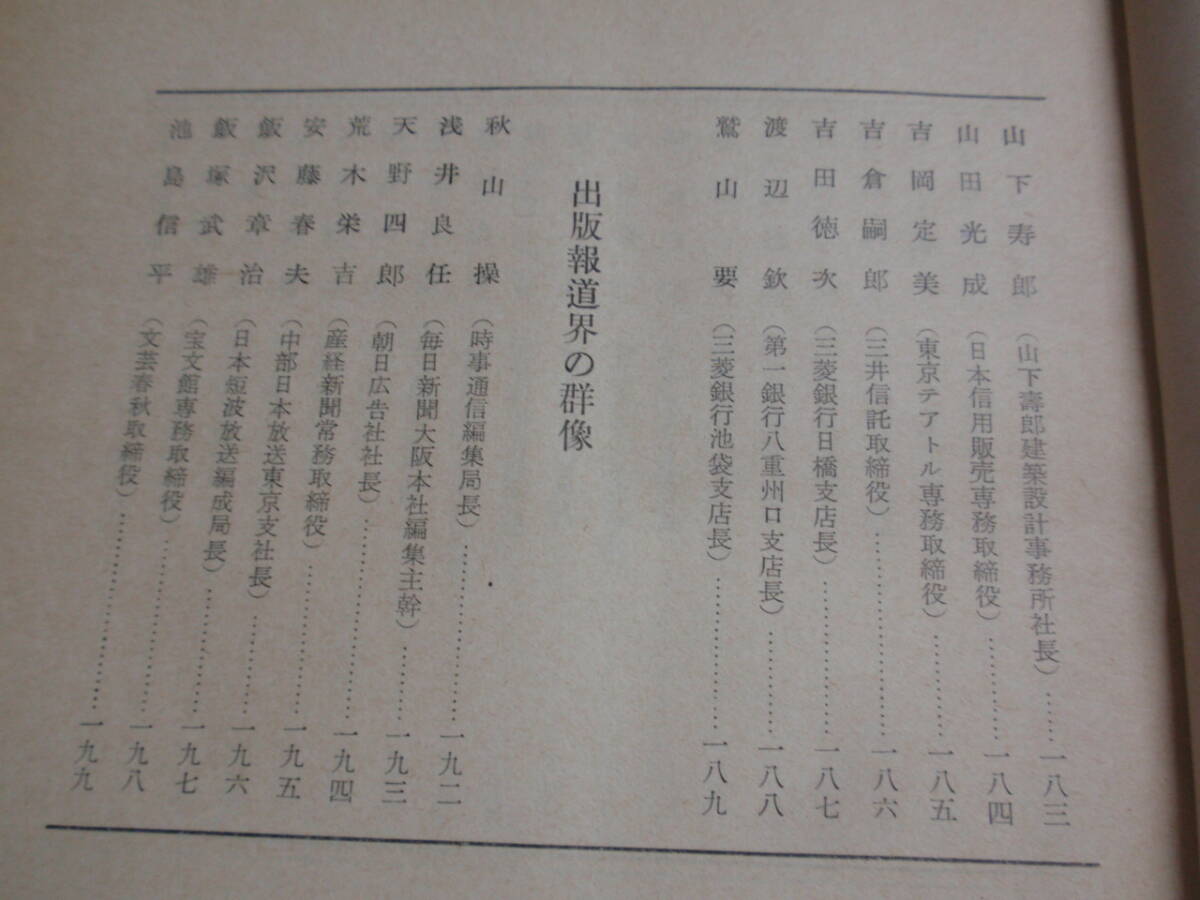 山下寿郎（山下壽郎建築設計事務所社長）……一八三
山田光成（日本信用販売専務取締役）…………一八四
吉岡定美（東京テアトル専務取締役）…………一八五
吉倉嗣郎（三井信託取締役）…………………一八六
吉田徳次（三菱銀行日橋支店長）………………一八七
渡辺欽（第一銀行八重州口支店長）…………一八八
鷲山要（三菱銀行池袋支店長）………………一八九
出版報道界の群像
秋山操（時事通信編集局長）…………………一九二
浅井良任（毎日新聞大阪本社編集主幹）………一九三
天野四郎（朝日広告社社長）…………………一九四
荒木栄吉（産経新聞常務取締役）………………一九五
安藤春夫（中部日本放送東京支社長）…………一九六
飯沢章治（日本短波放送編成局長）……………一九七
飯塚武雄（宝文館専務取締役）………………一九八
池島信平（文芸春秋取締役）…………………一九九